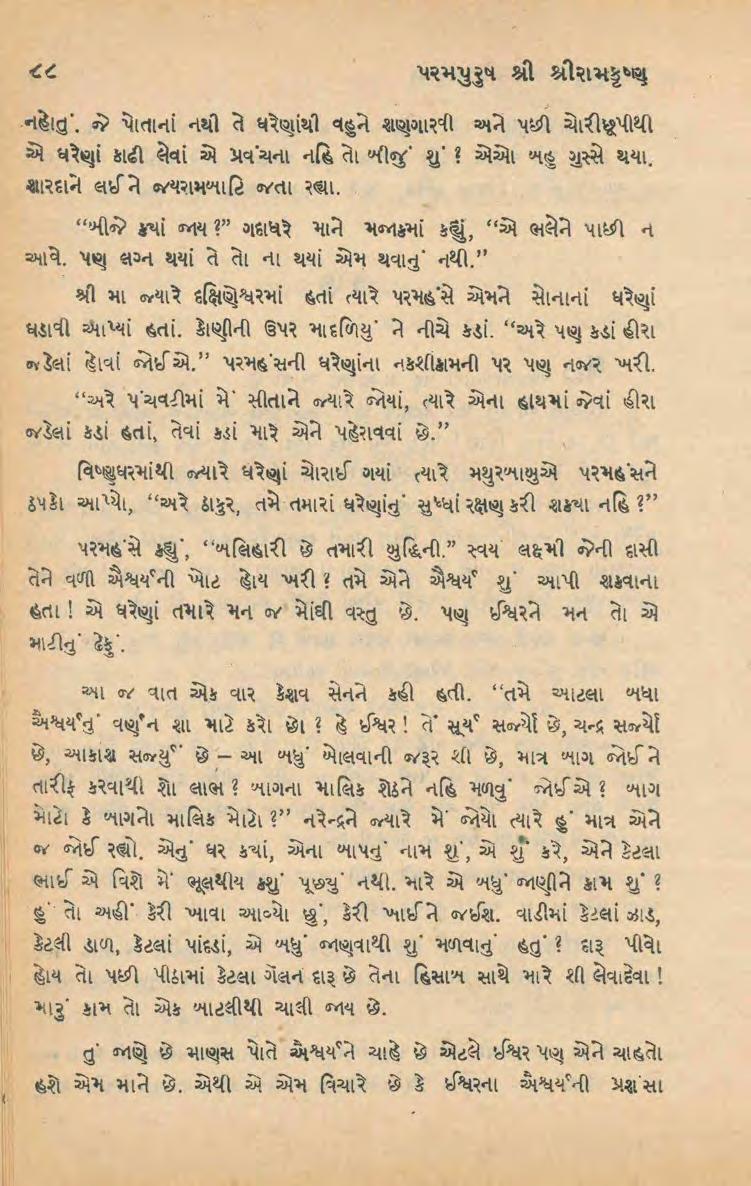 ૮૮ પરમપુરુષ શ્રી શ્રીરામકૃષ્ણ
નહોતું. જે પોતાનાં નથી તે ઘરેણાંથી વહુને શણગારવી અને પછી ચોરીછૂપીથી
એ ઘરેણાં કાઢી લેવાં એ પ્રવંચના નહિ તો બીજું શું ? એઓ બહુ ગુસ્સે થયા.
શારદાને લઈને જયરામબાટિ જતા રહ્યા.
“બીજે ક્યાં જાય ?” ગદાધરે માને મજાકમાં કહ્યું, “એ ભલેને પાછી ન
આવે. પણ લગ્ન થયાં તે તો ના થયાં એમ થવાનું નથી.”
શ્રી મા જ્યારે દક્ષિણેશ્વરમાં હતાં ત્યારે પરમહંસે એમને સોનાનાં ઘરેણાં
ઘડાવી આપ્યાં હતાં. કોણીની ઉપર માદળિયું ને નીચે કડાં. “અરે પણ કડાં હીરા
જડેલાં હોવાં જોઈએ.” પરમહંસની ઘરેણાંના નકશીકામની પર પણ નજર ખરી.
“અરે પંચવટીમાં મેં સીતાને જ્યારે જોયાં, ત્યારે એના હાથમાં જેવાં હીરા
જડેલાં કડાં હતાં, તેવાં કડાં મારે એને પહેરાવવાં છે.”
વિષ્ણુઘરમાંથી જ્યારે ઘરેણાં ચોરાઈ ગયાં ત્યારે મથુરબાબુએ પરમહંસને
ઠપકો આપ્યો, “અરે ઠાકુર, તમે તમારાં ઘરેણાંનું સુધ્ધાં રક્ષણ કરી શક્યા નહિ ?”
પરમહંસે કહ્યું, “બલિહારી છે તમારી બુદ્ધિની.” સ્વયં લક્ષ્મી જેની દાસી
તેને વળી ઐશ્વર્યની ખોટ હોય ખરી ? તમે એને ઐશ્વર્ય શું આપી શકવાના
હતા ! એ ઘરેણાં તમારે મન જ મોંઘી વસ્તુ છે. પણ ઈશ્વરને મન તો એ
માટીનું ઢેફું.
આ જ વાત એક વાર કેશવ સેનને કહી હતી. “તમે આટલા બધા
ઐશ્વર્યનું વર્ણન શા માટે કરો છો ? હે ઈશ્વર ! તેં સૂર્ય સર્જ્યો છે, ચન્દ્ર સર્જ્યો
છે, આકાશ સર્જ્યું છે – આ બધું બોલવાની જરૂર શી છે, માત્ર બાગ જોઈને
તારીફ કરવાથી શો લાભ ? બાગના માલિક શેઠને નહિ મળવું જોઈએ ? બાગ
મોટો કે બાગનો માલિક મોટો ?” નરેન્દ્રને જ્યારે મેં જોયો ત્યારે હું માત્ર એને
જ જોઈ રહ્યો. એનું ઘર ક્યાં, એના બાપનું નામ શું, એ શું કરે, એને કેટલા
ભાઈ એ વિશે મેં ભૂલથીય કશું પૂછ્યું નથી. મારે એ બધું જાણીને કામ શું ?
હું તો અહીં કેરી ખાવા આવ્યો છું, કેરી ખાઈને જઈશ. વાડીમાં કેટલાં ઝાડ,
કેટલી ડાળ, કેટલાં પાંદડાં, એ બધું જાણવાથી શું મળવાનું હતું ? દારૂ પીવો
હોય તો પછી પીઠામાં કેટલા ગૅલન દારૂ છે તેના હિસાબ સાથે મારે શી લેવાદેવા !
મારું કામ તો એક બાટલીથી ચાલી જાય છે.
તું જાણે છે માણસ પોતે ઐશ્વર્યને ચાહે છે એટલે ઈશ્વર પણ એને ચાહતો
હશે એમ માને છે. એથી એ એમ વિચારે છે કે ઈશ્વરના ઐશ્વર્યની પ્રશંસા